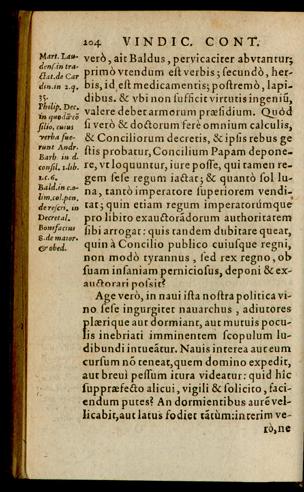 204 VINDIC. CONT.
Mart. Lau-
dens. in tra-
ctat. de Car
din. in 2. q.
35.
Philip. Dec.
in quodā cō
silio, cuius
verba fue-
runt Andr.
Barb. in d.
consil. 1. lib.
1. c. 6.
Bald. in c. o-
lim, col. pen.
de rescr. in
Decretal.
Bonifacius
8. de maior.
& obed.
verò, ait Baldus, pervicaciter abvtantur;
primò vtendum est verbis; secundò, her-
bis, id est medicamentis; postremò, lapi-
dibus. & vbi non sufficit virtutis ingeniū,
valere debet armorum præsidium. Quòd
si verò & doctorum ferè omnium calculis,
& Conciliorum decretis, & ipsis rebus ge
stis probatur, Concilium Papam depone-
re, vt loquuntur, iure posse, qui tamen re-
gem sese regum iactat; & quantò sol lu-
na, tantò imperatore superiorem vendi-
tat; quin etiam regum imperatorúmque
pro libito exauctorádorum authoritatem
sibi arrogat: quis tandem dubitare queat,
quin à Concilio publico cuiusque regni,
non modò tyrannus, sed rex regno, ob
suam insaniam perniciosus, deponi & ex-
auctorari possit?
Age verò, in naui ista nostra politica vi-
no sese ingurgitet nauarchus, adiutores
plærique aut dormiant, aut mutuis pocu-
lis inebriati imminentem scopulum lu-
dibundi intueātur. Nauis interea aut eum
cursum nō teneat, quem domino expedit,
aut breui pessum itura videatur: quid hîc
suppræfecto alicui, vigili & solicito, faci-
endum putes? An dormientibus aurē vel-
licabit, aut latus fodiet tātùm: interim ve-
rò, ne